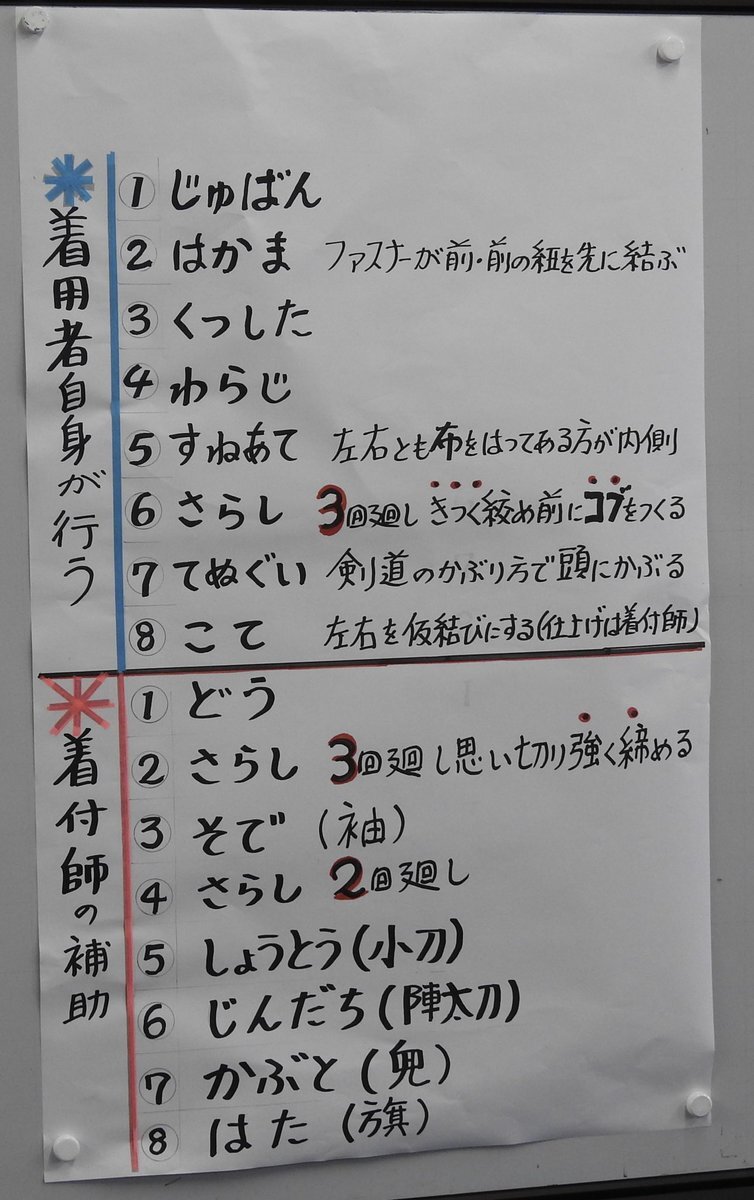 着用者自身が行う
① じゅばん
② はかま ファスナーが前・前の紐を先に結ぶ
③ くつした
④ わらじ
⑤ すねあて 左右とも布をはってある方が内側
⑥ さらし 3回廻し きつく絞め前にコブをつくる
⑦ てぬぐい 剣道のかぶり方で頭にかぶる
⑧ こて 左右を仮結びにする(仕上げは着付師)
着付師の補助
① どう
② さらし 3回廻し思い切り強く締める
③ そで (袖)
④ さらし 2回廻し
⑤ しょうとう(小刀)
⑥ じんだち(陣太刀)
⑦ かぶと(兜)
⑧ はた (旗)